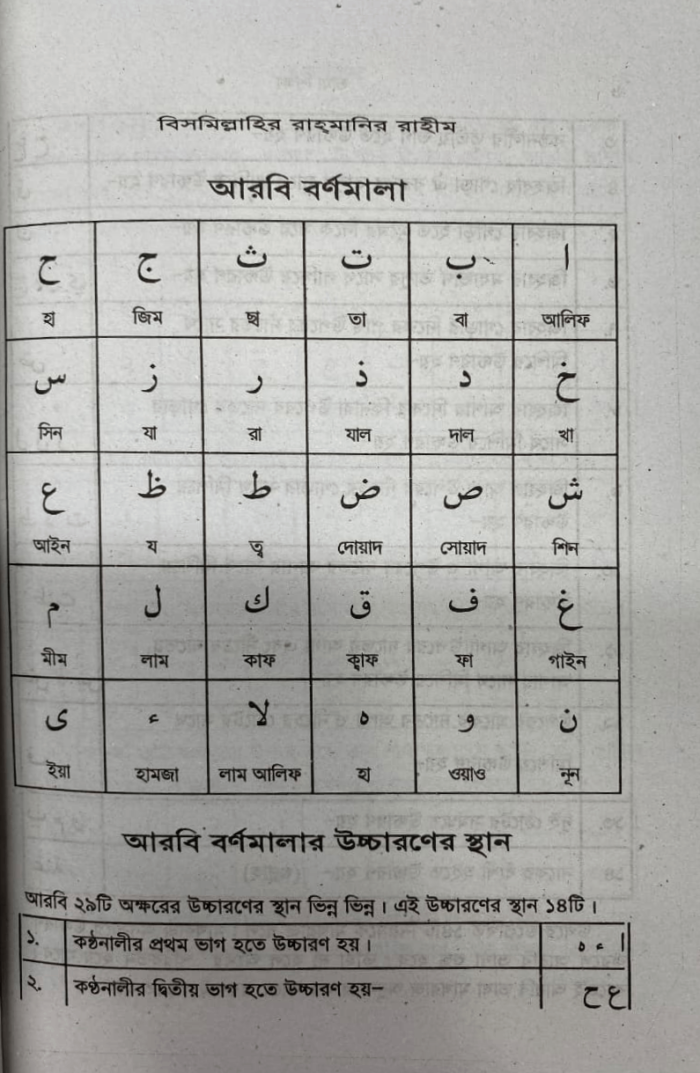 বিসমিল্লাহির রাহমানির রাহীম
আরবি বর্ণমালা
ا ب ت ث ج ح
আলিফ বা তা ছ্ব জিম হা
خ د ذ ر ز س
খা দাল যাল রা যা সিন
ش ص ض ط ظ ع
শিন সোয়াদ দোয়াদ ত্ব য আইন
غ ف ق ك ل م
গাইন ফা ক্বাফ কাফ লাম মীম
ن و ه لا ء ى
নূন ওয়াও হা লাম আলিফ হামজা ইয়া
আরবি বর্ণমালার উচ্চারণের স্থান
আরবি ২৯টি অক্ষরের উচ্চারণের স্থান ভিন্ন ভিন্ন। এই উচ্চারণের স্থান ১৪টি।
১. কণ্ঠনালীর প্রথম ভাগ হতে উচ্চারণ হয়। ا ء ه
২. কণ্ঠনালীর দ্বিতীয় ভাগ হতে উচ্চারণ হয়– ع ح